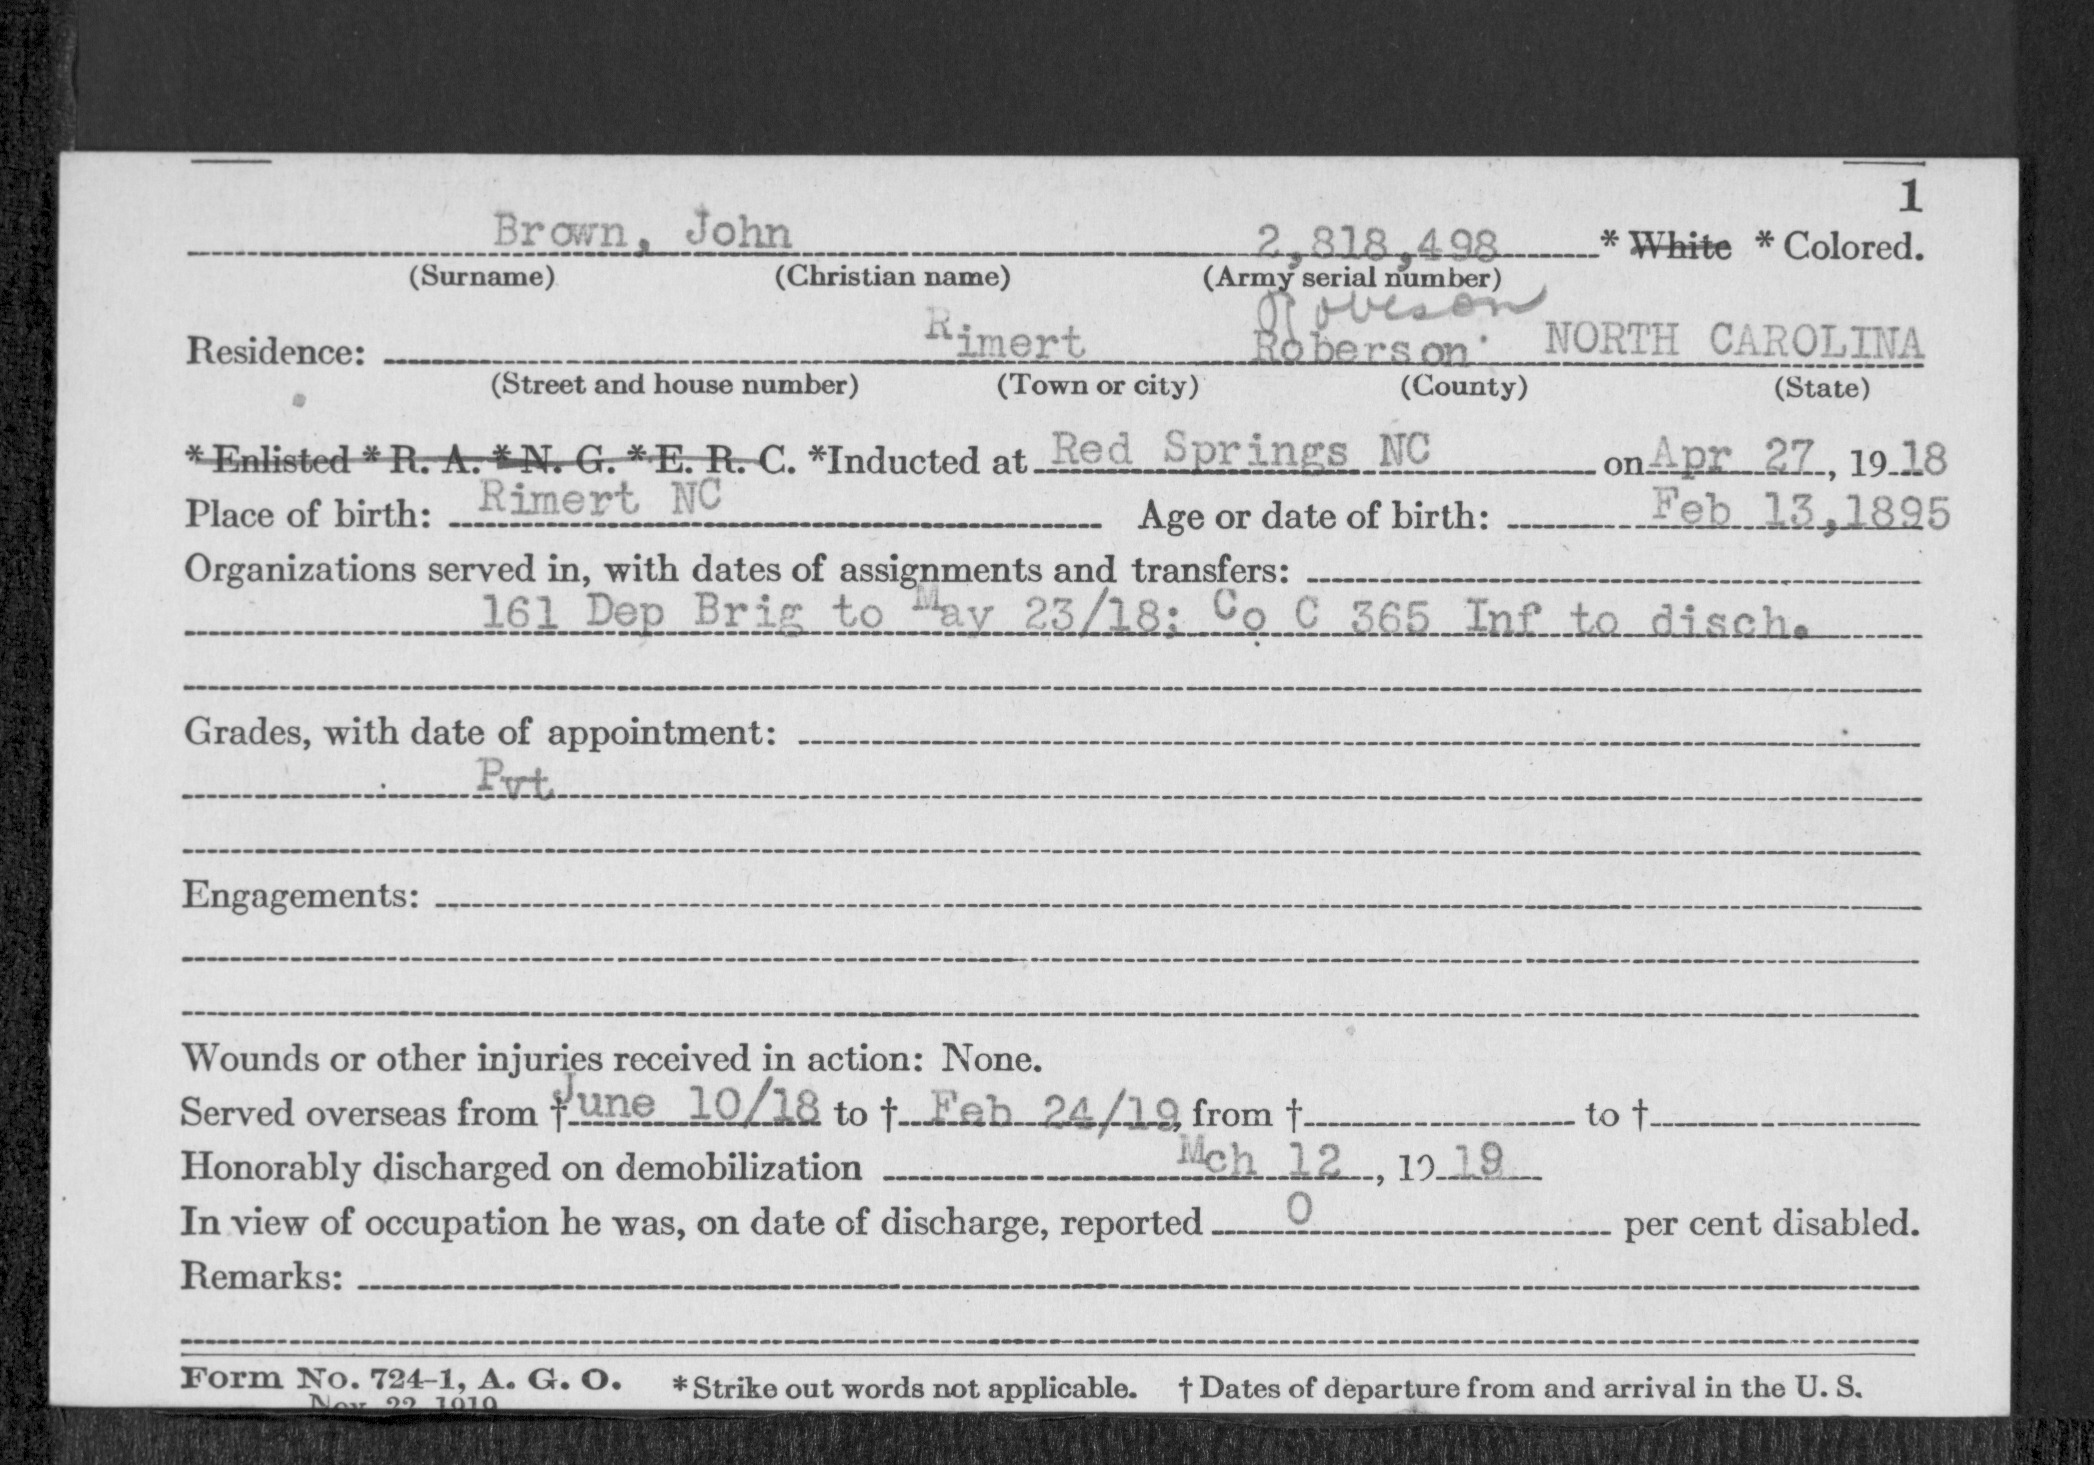 1
Brown, John 2,818,498 * White * Colored.
(Surname) (Christian name) (Army serial number)
Robeson
Residence: Rimert Roberson NORTH CAROLINA
(Street and house number) (Town or city) (County) (State)
* Enlisted * R. A. * N. G. * E. R. C. *Inducted at Red Springs NC on Apr 27, 1918
Place of birth: Rimert NC Age or date of birth: Feb 13,1895
Organizations served in, with dates of assignments and transfers:
161 Dep Brig to May 23/18; Co C 365 Inf to disch.
Grades, with date of appointment:
Pvt
Engagements:
Wounds or other injuries received in action: None.
Served overseas from † June 10/18 to † Feb 24/19, from † to †
Honorably discharged on demobilization Mch 12, 1919
In view of occupation he was, on date of discharge, reported 0 per cent disabled.
Remarks:
Form No. 724-1, A. G. O. * Strike out words not applicable. † Dates of departure from and arrival in the U. S.
Nov. 22, 1919